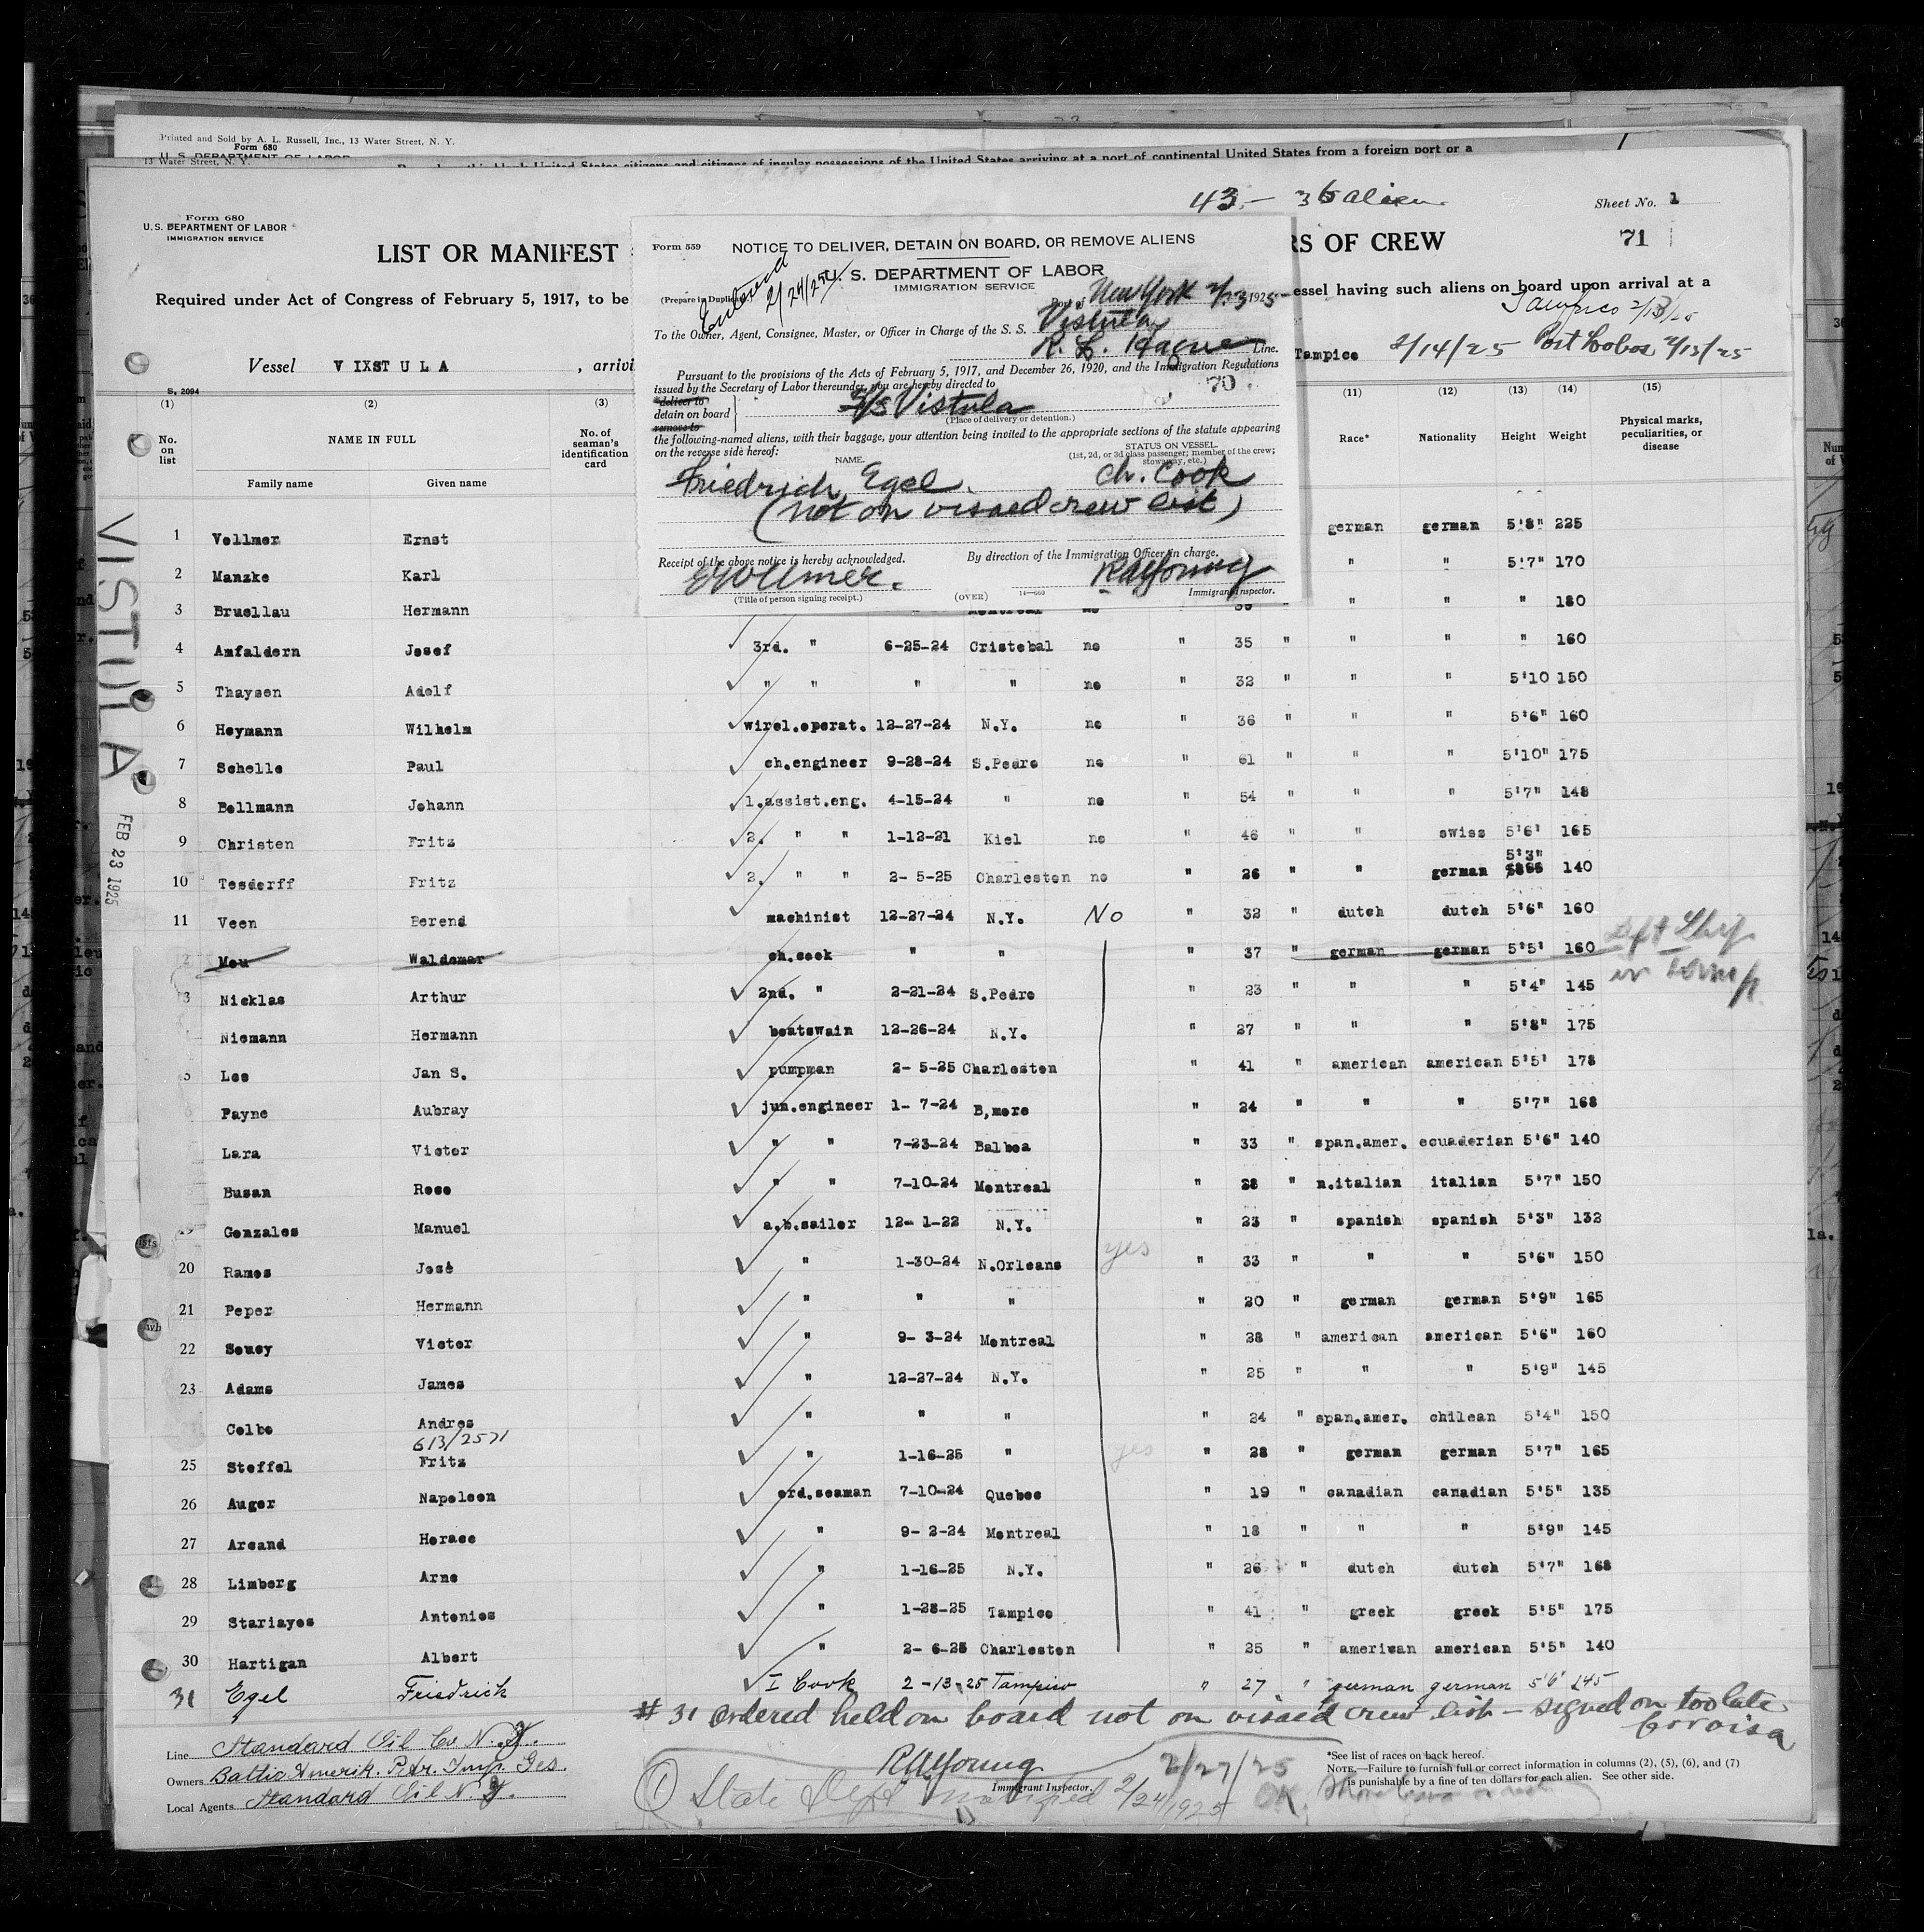 Printed and Sold by A. L. Russell, Inc., 13 Water Street, N. Y.
Form 680
U. S. DEPARTMENT OF LABOR
13 Water Street, N. Y.
United States citizens and citizens of insular possessions of the United States arriving at a port of continental United States from a foreign port or a
43 — 36 alien
Sheet No. 1
71
Form 680
U. S. DEPARTMENT OF LABOR
IMMIGRATION SERVICE
LIST OR MANIFEST
RS OF CREW
Required under Act of Congress of February 5, 1917, to be
essel having such aliens on board upon arrival at a
Tampico 2/13/25
Vessel VIXSTULA , arrivi
Tampico 2/14/25 Port Lobos 2/13/25
Form 559
NOTICE TO DELIVER, DETAIN ON BOARD, OR REMOVE ALIENS
S. DEPARTMENT OF LABOR
IMMIGRATION SERVICE
(Prepare in Duplicate)
2/24/25
Port of New York 2/23 1925
To the Owner, Agent, Consignee, Master, or Officer in Charge of the S. S. Vistula
R. L. Hague Line.
Pursuant to the provisions of the Acts of February 5, 1917, and December 26, 1920, and the Immigration Regulations
issued by the Secretary of Labor thereunder, you are hereby directed to
70
deliver to
detain on board
remove to
S/S Vistula
(Place of delivery or detention.)
the following-named aliens, with their baggage, your attention being invited to the appropriate sections of the statute appearing
on the reverse side hereof:
NAME.
STATUS ON VESSEL.
(1st, 2d, or 3d class passenger; member of the crew;
stowaway, etc.)
Friedrich Egel. Ch. Cook
(not on visaed crew list)
Receipt of the above notice is hereby acknowledged.
By direction of the Immigration Officer in charge.
E Vollmer.
R A Young
(Title of person signing receipt.)
(OVER)
14—660
Immigrant Inspector.
S, 2094
(1) (2) (3) (11) (12) (13) (14) (15)
No. on list
NAME IN FULL
Family name Given name
No. of seaman's identification card
Race* Nationality Height Weight
Physical marks, peculiarities, or disease
VISTULA
FEB 23 1925
1 Vollmer Ernst german german 5'8" 225
2 Manzke Karl " " 5'7" 170
3 Bruellau Hermann Montreal no 39 " " " 180
4 Amfaldern Josef 3rd. " 6-25-24 Cristobal no " 35 " " " " 160
5 Thaysen Adolf " " " " no " 32 " " " 5'10 150
6 Heymann Wilhelm wirel.operat. 12-27-24 N.Y. no " 36 " " " 5'6" 160
7 Schelle Paul ch.engineer 9-28-24 S.Pedro no " 61 " " " 5'10" 175
8 Bellmann Johann 1.assist.eng. 4-15-24 " no " 54 " " " 5'7" 148
9 Christen Fritz 2. " " 1-12-21 Kiel no " 46 " " swiss 5'6' 165
10 Tesdorff Fritz 2. " " 2- 5-25 Charleston no " 26 " " german 5'3" 140
11 Veen Berend machinist 12-27-24 N.Y. No " 32 " dutch dutch 5'6" 160
2 Mou Waldemar ch.cook " " " 37 " german german 5'5' 160 Left Ship
in Tamp.
3 Nicklas Arthur 2nd. " 2-21-24 S.Pedro " 23 " " " 5'4" 145
Niemann Hermann boatswain 12-26-24 N.Y. " 27 " " " 5'8" 175
5 Lee Jan S. pumpman 2- 5-25 Charleston " 41 " american american 5'5' 178
Payne Aubray jun.engineer 1- 7-24 B,more " 24 " " " 5'7" 168
Lara Victor " " 7-23-24 Balboa " 33 " span.amer. ecuadorian 5'6" 140
Busan Rose " " 7-10-24 Montreal " 28 " n.italian italian 5'7" 150
19 Gonzales Manuel a.b.sailor 12- 1-22 N.Y. " 23 " spanish spanish 5'3" 132
20 Ramos José " 1-30-24 N.Orleans yes " 33 " " " 5'6" 150
21 Peper Hermann " " " " 20 " german german 5'9" 165
22 Soucy Victor " 9- 3-24 Montreal " 28 " american american 5'6" 160
23 Adams James " 12-27-24 N.Y. " 25 " " " 5'9" 145
Colbo Andres " " " " 24 " span.amer. chilean 5'4" 150
613/2571
25 Steffel Fritz " 1-16-25 " yes " 28 " german german 5'7" 165
26 Auger Napoleon ord.seaman 7-10-24 Quebec " 19 " canadian canadian 5'5" 135
27 Arcand Horace " 9- 2-24 Montreal " 18 " " " 5'9" 145
28 Limberg Arne " 1-16-25 N.Y. " 26 " dutch dutch 5'7" 168
29 Stariayos Antonios " 1-28-25 Tampico " 41 " greek greek 5'5" 175
30 Hartigan Albert " 2- 6-25 Charleston " 25 " american american 5'5" 140
31 Egel Friedrich I Cook 2 -13-25 Tampico " 27 " german german 5'6' 145
# 31 Ordered held on board not on visaed crew list - signed on too late
for visa
Line Standard Oil Co N.Y.
Owners Baltic Amerik. Petr. Imp. Ges.
Local Agents Standard Oil N.Y.
R A Young
Immigrant Inspector.
2/27/25
1 State Dept notified 2/24/1925 OK.
*See list of races on back hereof.
NOTE.—Failure to furnish full or correct information in columns (2), (5), (6), and (7)
is punishable by a fine of ten dollars for each alien. See other side.